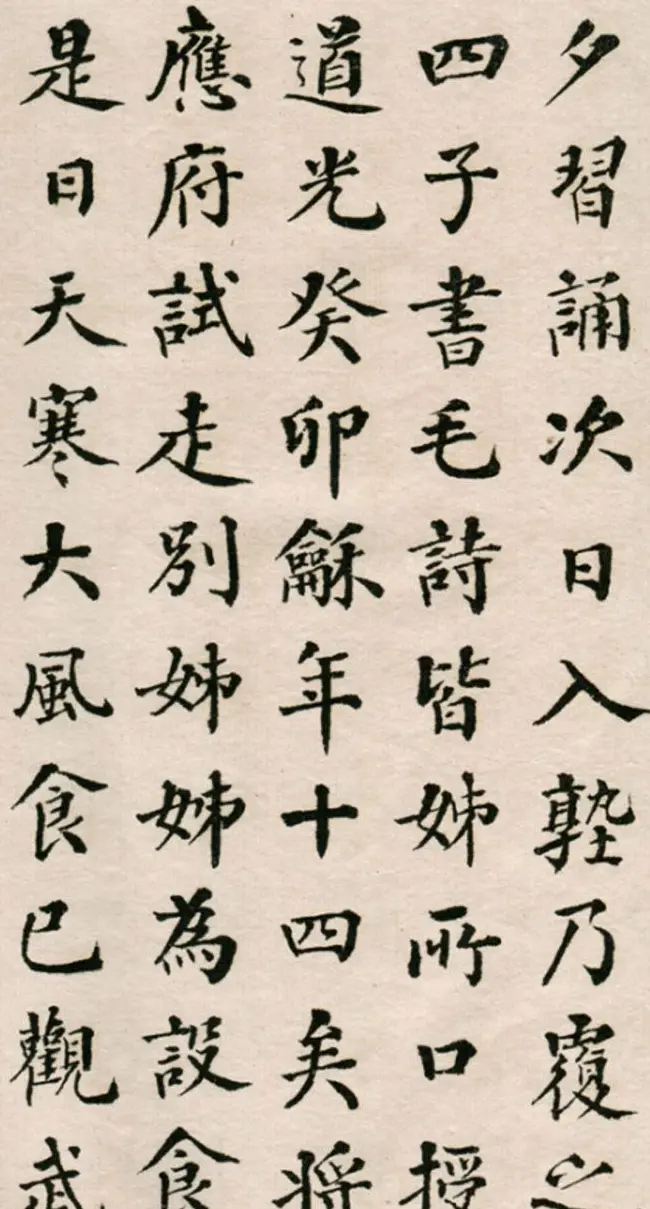 夕習誦次日入塾乃覆之
四子書毛詩皆姊所口授
道光癸卯龢年十四矣將
應府試走別姊姊為設食
是日天寒大風食已觀武